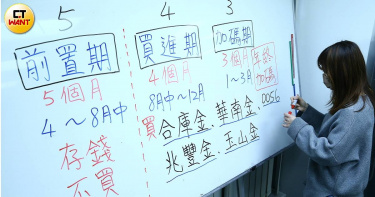 CTWANT
5
4
3
前置期
買進期
加碼期
5個月
4個月
3個月
年終
加碼
4～8月中
8月中～12月
1～3月
存錢
不買
買合庫金、華南金、0056
兆豐金、玉山金